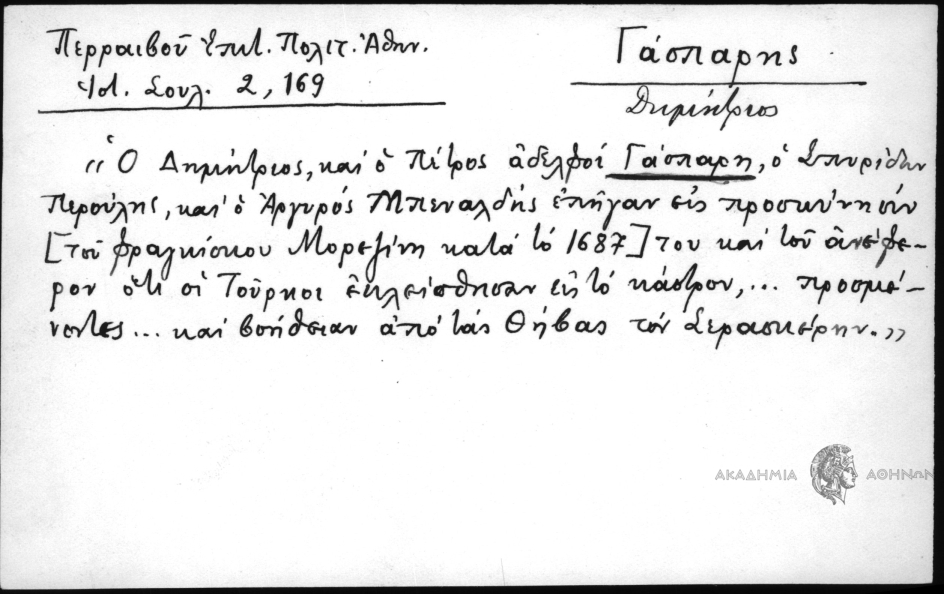 Περραιβοῦ Ἐπιτ. Πολιτ. Ἀθην.
Ἱστ. Σουλ. 2, 169
Γάσπαρης
Δημήτριος
«Ὁ Δημήτριος, καί ὁ Πέτρος ἀδελφοί Γάσπαρη, ὁ Σπυρίδων
Περούλης, καί ὁ Ἀργυρός Μπεναλδής ἐπῆγαν εἰς προσκύνησιν
[τοῦ Φραγκίσκου Μορεζίνη κατά τό 1687] του καί τοῦ ἀνέφε-
ρον ὅτι οἱ Τοῦρκοι ἐκλείσθησαν εἰς τό κάστρον, ... προσμέ-
νοντες ... καί βοήθειαν ἀπό τάς Θήβας τόν Σερασκέρην.»
ΑΚΑΔΗΜΙΑ ΑΘΗΝΩΝ